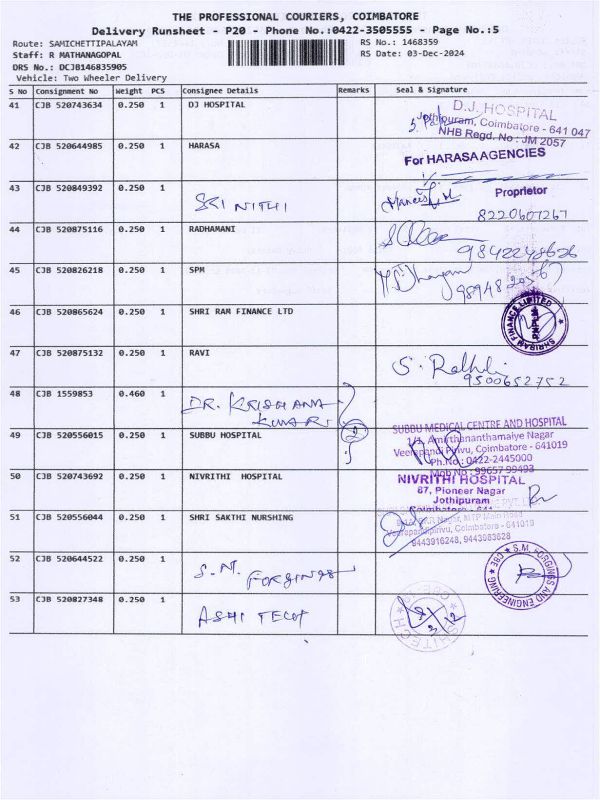 THE PROFESSIONAL COURIERS, COIMBATORE
Delivery Runsheet - P20 - Phone No.:0422-3505555 - Page No.:5
Route: SAMICHETTIPALAYAM RS No.: 1468359
Staff: R MATHANAGOPAL RS Date: 03-Dec-2024
DRS No.: DCJB146835905
Vehicle: Two Wheeler Delivery
S No Consignment No Weight PCS Consignee Details Remarks Seal & Signature
41 CJB 520743634 0.250 1 DJ HOSPITAL
D.J. HOSPITAL
Jothipuram, Coimbatore - 641 047
NHB Regd. No : JM 2057
42 CJB 520644985 0.250 1 HARASA
For HARASA AGENCIES
Proprietor
43 CJB 520849392 0.250 1
SRI NITHI
8220607267
44 CJB 520875116 0.250 1 RADHAMANI
9842248626
45 CJB 520826218 0.250 1 SPM
46 CJB 520865624 0.250 1 SHRI RAM FINANCE LTD
SHRIRAM FINANCE LIMITED
47 CJB 520875132 0.250 1 RAVI
9500652752
48 CJB 1559853 0.460 1
DR. KRISHANA
KUMAR
2
49 CJB 520556015 0.250 1 SUBBU HOSPITAL
SUBBU MEDICAL CENTRE AND HOSPITAL
1/1, Amirthananthamaiye Nagar
Veerapandi Pirivu, Coimbatore - 641019
Ph.No : 0422-2445000
Mob No : 99657 99493
50 CJB 520743692 0.250 1 NIVRITHI HOSPITAL
NIVRITHI HOSPITAL
67, Pioneer Nagar
Jothipuram
Coimbatore - 641
51 CJB 520556044 0.250 1 SHRI SAKTHI NURSHING
Nagar, MTP Main Road
Veerapandipirivu, Coimbatore - 641019
9443916248, 9443083628
52 CJB 520644522 0.250 1
S.M. FORGINGS
S.M. FORGINGS AND ENGINEERING CBE
53 CJB 520827348 0.250 1
ASHI TECH
ASHITECH CBE